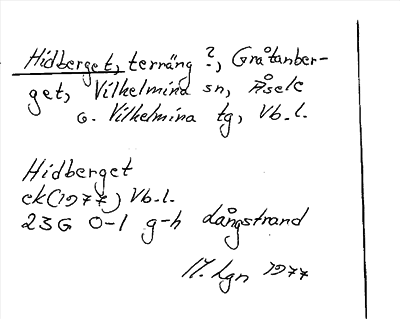 Hidberget, terräng ?, Gråtanber-
get, Vilhelmina sn, Åsele
o. Vilhelmina tg, Vb. l.
Hidberget
ek(1977) Vb. l.
23G 0-1 g-h Långstrand
M. Lgn 1977